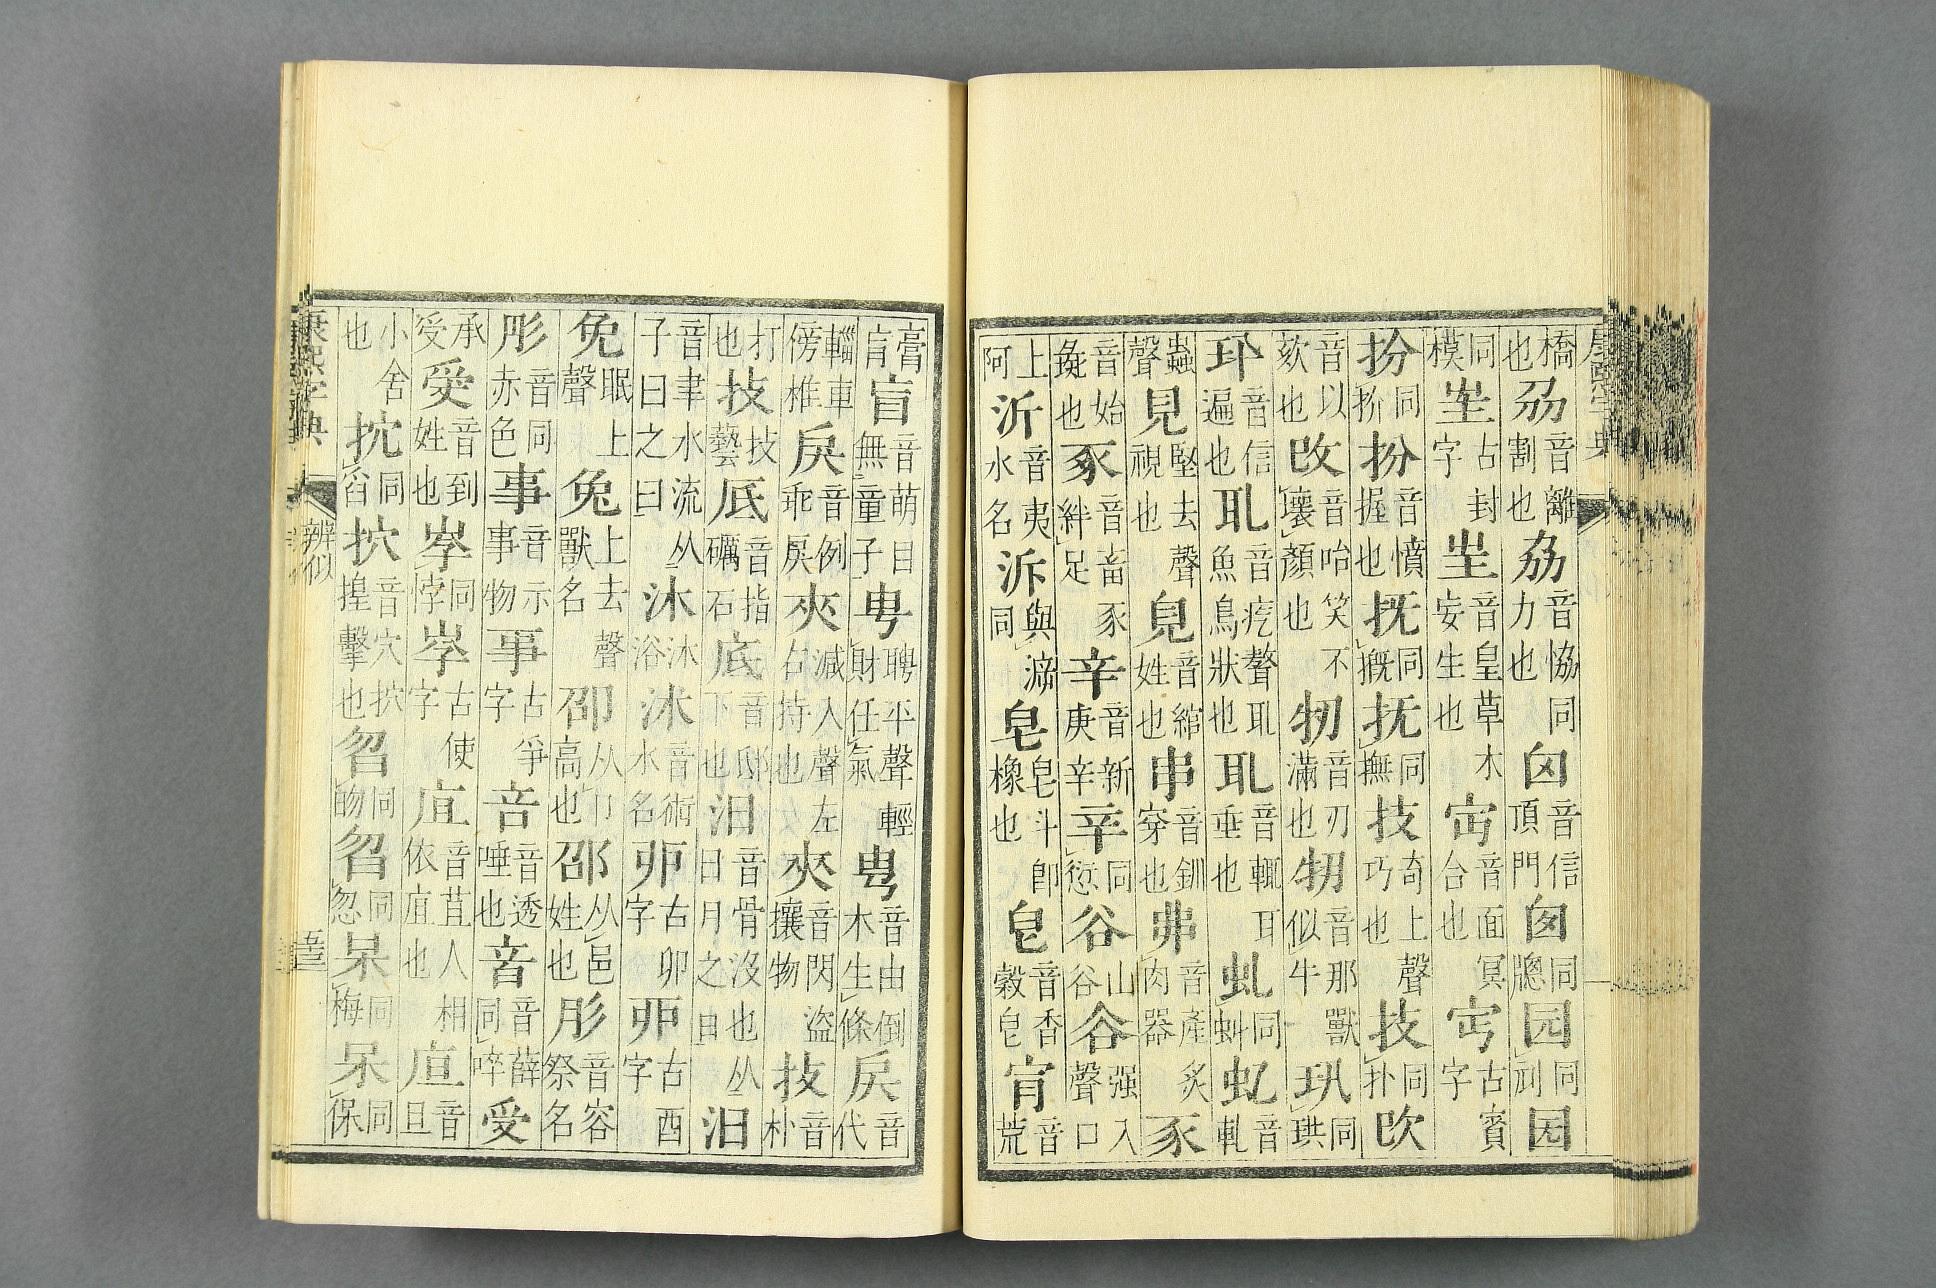 橋也刕音離割也劦音協力也同囟音信頂門囱同牕园同刓囩
同模㘴古封字㞷音皇草木妄生也宁音面冥台也㝉古賓字
扮同扮音憤握也抚同摡抚同撫技奇上聲巧也技同扑吹
音以欬也改音咍笑不壞顏也牣音刃滿也音那獸似牛玒同珙
音信遍也耴音疙聱耴魚鳥狀也耴音輒耳垂也虬同虯虬音軋
蟲聲見堅去聲視也皃音綰姓也串音釧穿也弗音產炙肉器豕
音始彘也豖音畜豕絆足辛音新庚辛䇂同愆谷山谷𧮫强入聲口
上阿沂音夷水名泝與㴑同皂皂斗卽橡也皀音香榖皀肓音荒
膏肓盲音萌目無童子甹聘平聲輕財任氣甹音由倒木生條戾音代
輜車傍椎戾音例乖戾夾減入聲左右持也夾音閃盜攘物技音朴
打也技音技藝厎音指礪石底音邸下也汩音骨沒也从日月之日汨
音聿水流从子曰之曰沐沐浴沭音術水名丣古卯字丣古酉字
免眠上聲兔上去聲獸名卲从卩高也邵从邑姓也肜音容祭名
彤音同赤色事音示事物亊古爭字咅音透唾也音音薛同啐受
承受受音到姓也孛同悖㞨古使字㡹音苴人相依㡹也㡺音旦
小舍也抌同舀抭音穴抭揘擊也曶同昒曶同忽杲同梅呆同保
康熙字典
辨似